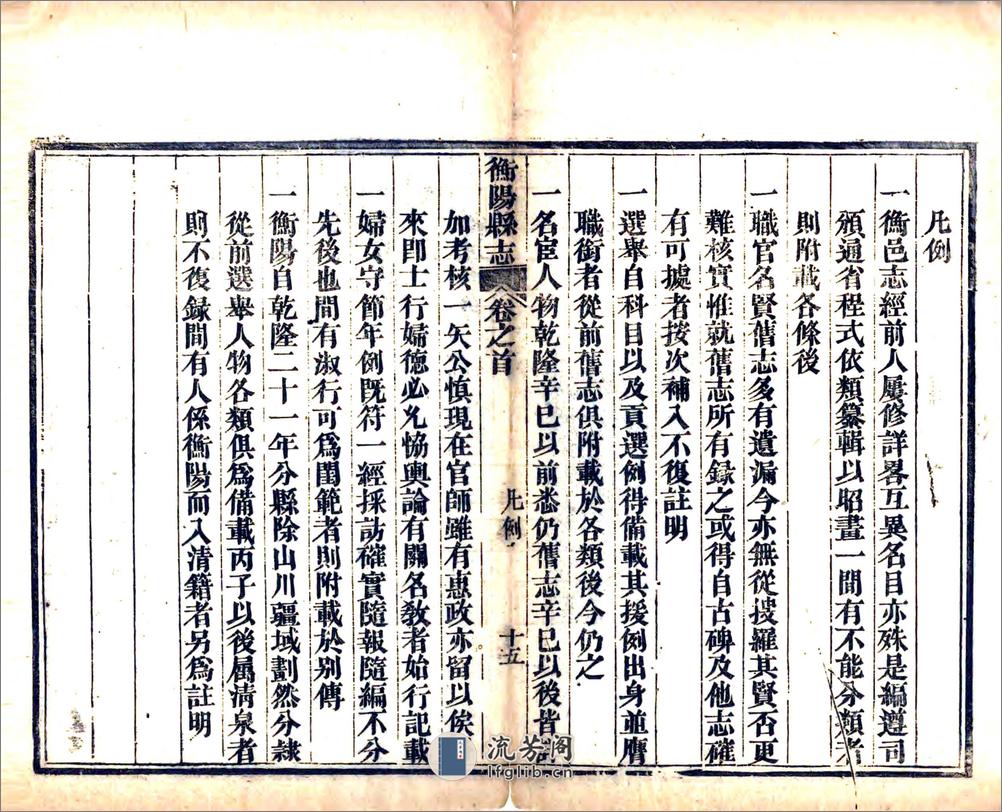 凡例
一衡邑志經前人屢修詳畧互異名目亦殊是編遵司
頒通省程式依類纂輯以昭畫一間有不能分類者
則附載各條後
一職官名賢舊志多有遺漏今亦無從搜羅其賢否更
難核實惟就舊志所有録之或得自古碑及他志確
有可據者按次補入不復註明
一選舉自科目以及貢選例得備載其援例出身並膺
職銜者從前舊志俱附載於各類後今仍之
一名宦人物乾隆辛巳以前悉仍舊志辛巳以後皆
衡陽縣志 卷之首 凡例 十五
加考核一矢公愼現在官師雖有惠政亦留以俟
來卽士行婦德必允恊輿論有關名敎者始行記載
一婦女守節年例既符一經採訪確實隨報隨編不分
先後也間有淑行可爲閨範者則附載於别傳
一衡陽自乾隆二十一年分縣除山川疆域劃然分隸
從前選舉人物各類俱爲備載丙子以後属淸泉者
則不復録間有人係衡陽而入清籍者另爲註明
流芳閣
lfglib.cn